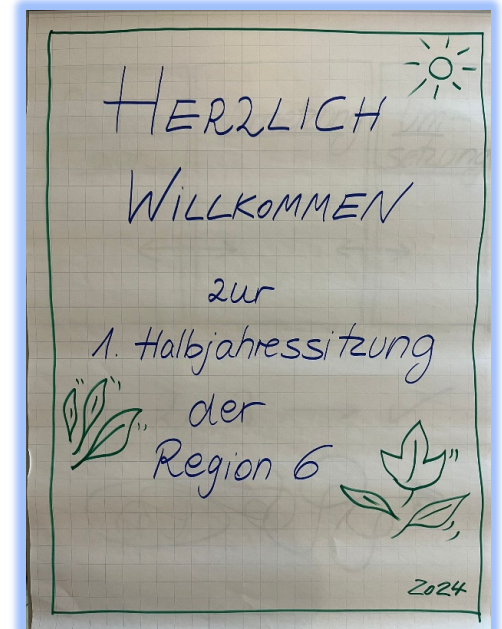 HERZLICH
WILLKOMMEN
zur
1. Halbjahressitzung
der
Region 6
2024